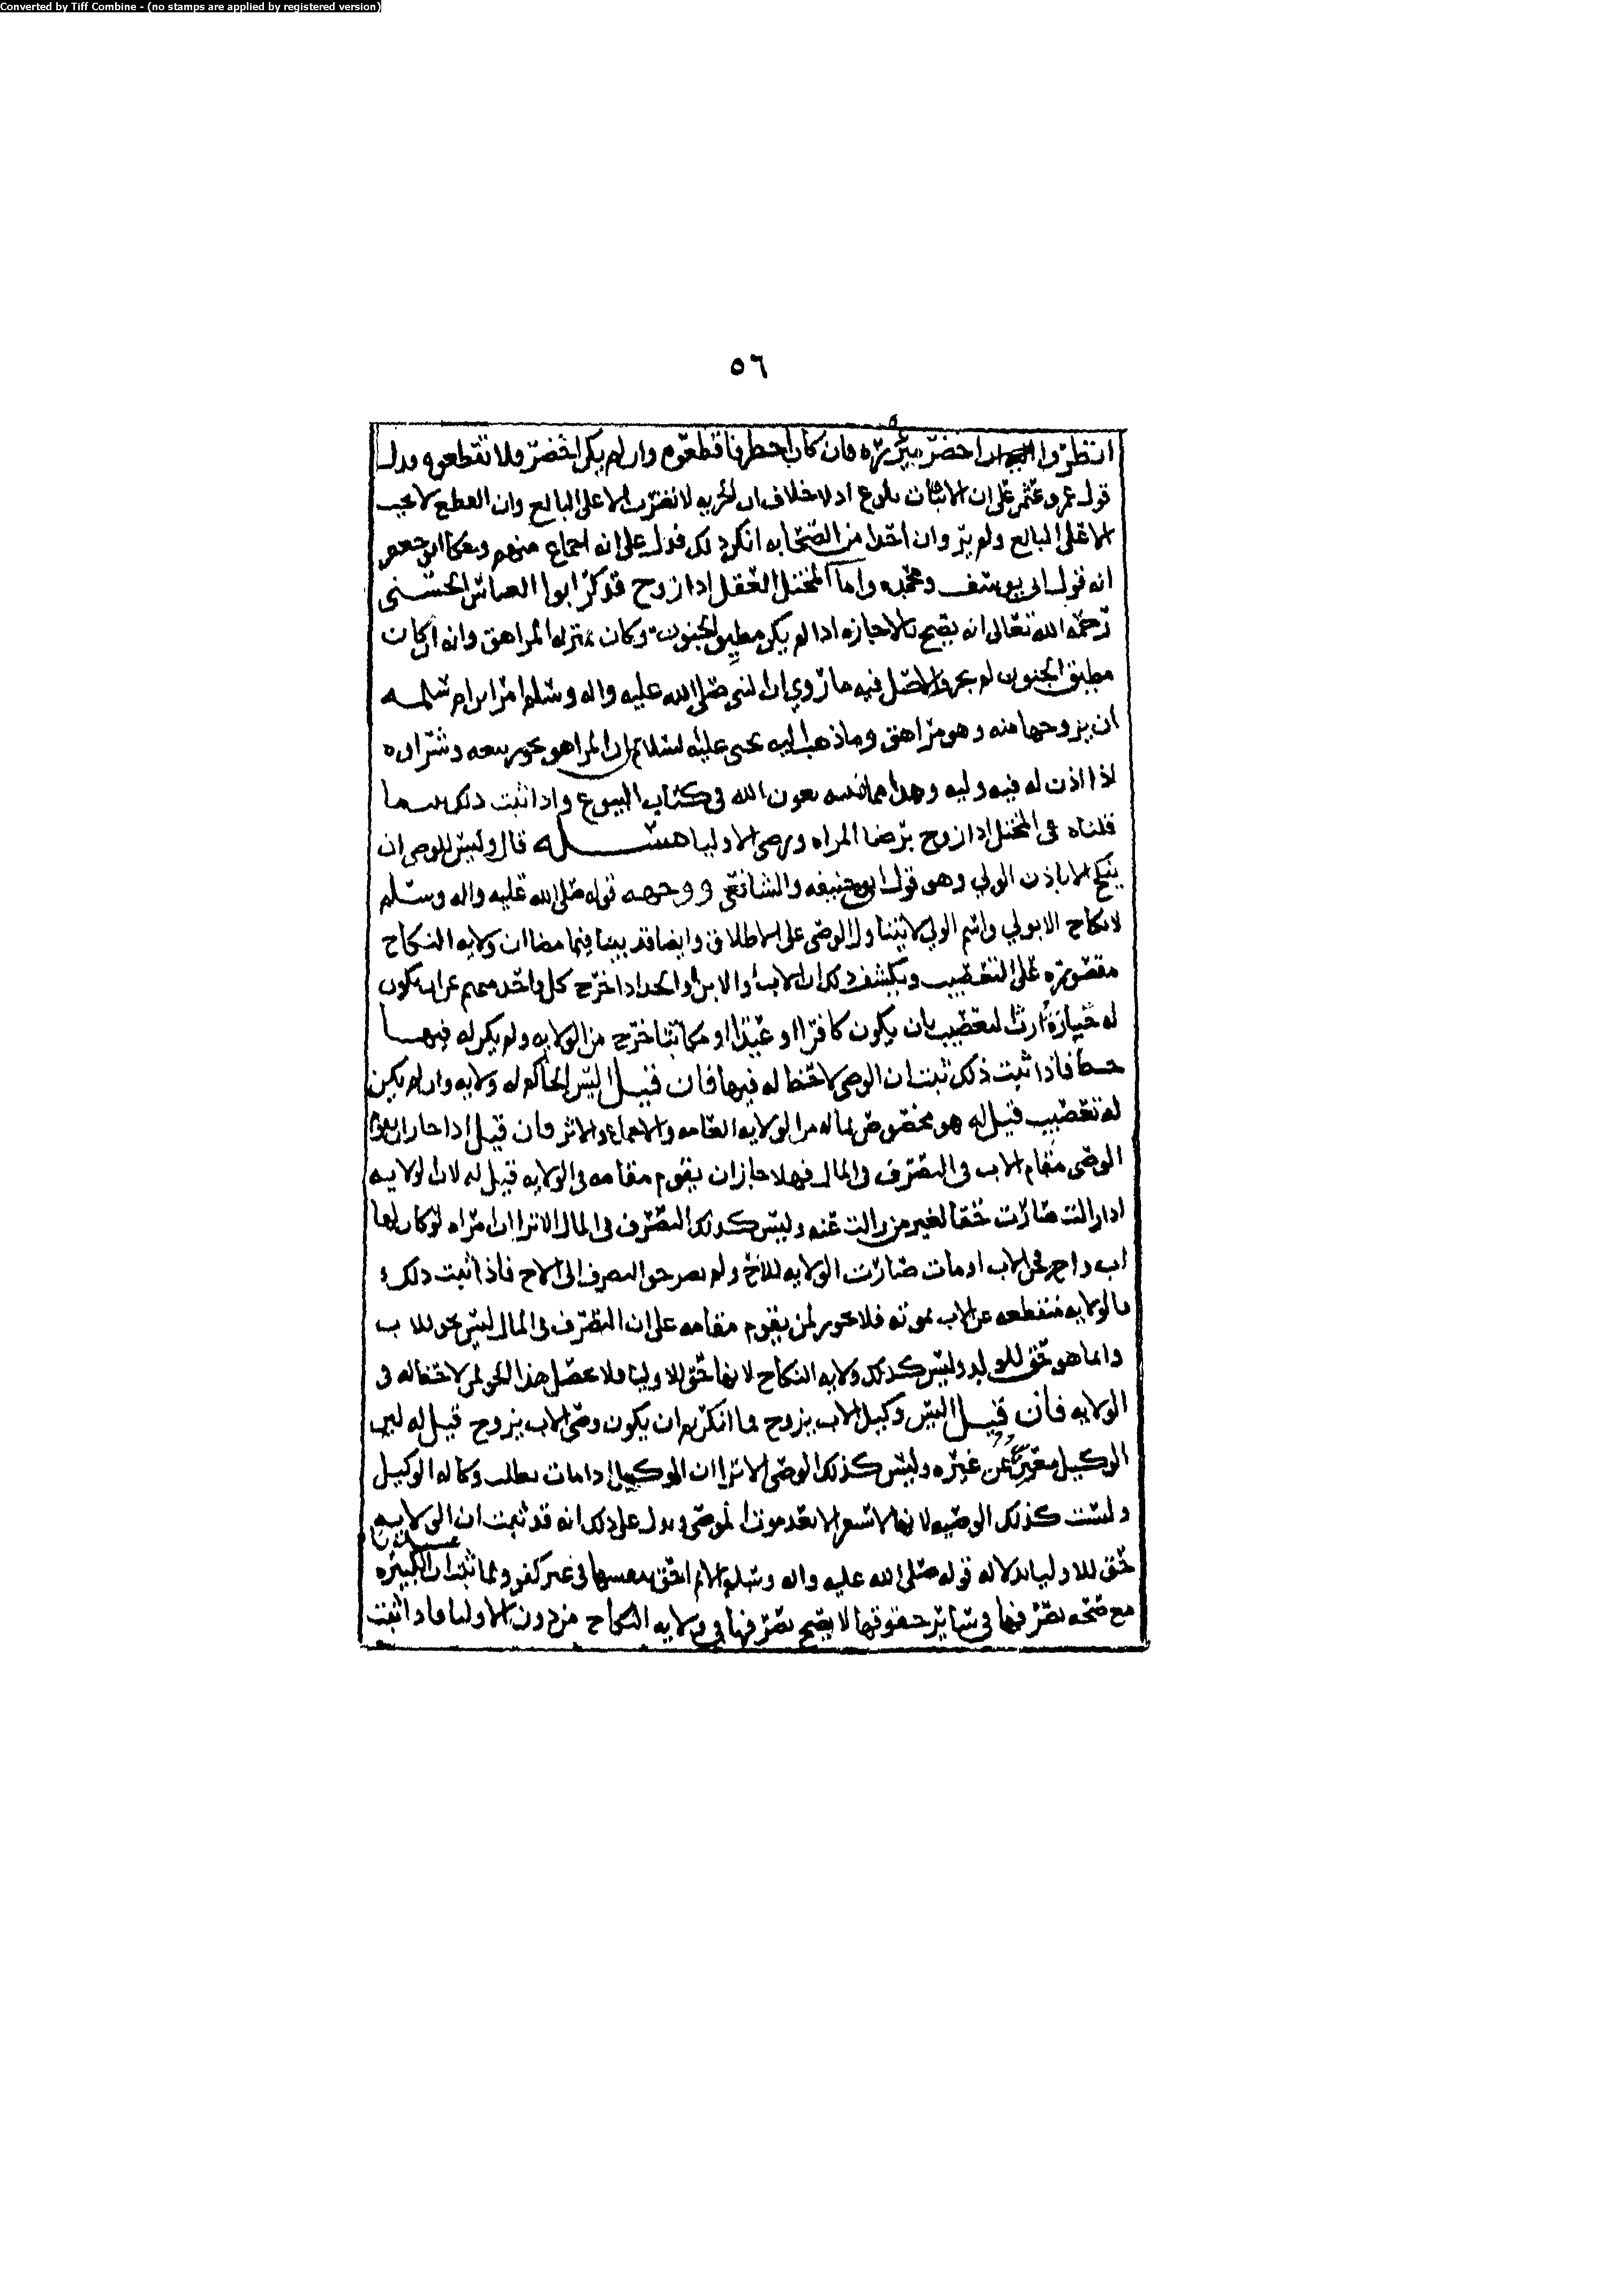 Converted by Tiff Combine - (no stamps are applied by registered version)
٥٦
انظروا احضر ميزره فان كان اخضر فاقطعوه وان لم يكن اخضر فلا تقطعوه فدل
قول عمر وعثمن على ان الانبات بلوغ اذ لا خلاف ان الجزيه لا تضرب الا على البالغ وان القطع لا يجب
الا على البالغ ولم يرو ان احدا من الصحابه انكر ذلك فدل على انه اجماع منهم وحكى ابو جعفر
انه قول ابي يوسف ومحمد واما المختل العقل اذا زوج قد ذكر ابوا العباس الحسني
رحمه الله تعالى انه يصح بالاجازه اذا لم يكن مطبق الجنون وكان بمنزله المراهق وانه ان كان
مطبق الجنون لم يجز والاصل فيه ما روي ان النبي صلى الله عليه واله وسلم امر ابن ام سلمه
ان يزوجها منه وهو مراهق وما ذهب اليه يحيى عليه السلام ان المراهق يجوز بيعه وشراوه
اذا اذن له فيه وليه وهذا مما نبينه بعون الله في كتاب البيوع واذا ثبت ذلك ثبت ما
قلناه في المختل اذا زوج برضا المراه ورضى الاوليا مسئله قال وليس للوصي ان
ينكح الا باذن الولي وهو قول ابو حنيفه والشافعي ووجهه قوله صلى الله عليه واله وسلم
لا نكاح الا بولي واسم الولي لا يتناول الوصي على الاطلاق وايضا قد بينا فيما مضا ان ولايه النكاح
مقصوره على التعصيب ويكشف ذلك ان الاب والابن والجد اذا خرج كل واحد منهم عن ان يكون
له حيازة ارث التعصيب بان يكون كافرا او عبدا او مكاتبا خرج من الولايه ولم يكن له فيها
حظ فاذا ثبت ذلك ثبت ان الوصي لا حظ له فيها فان قيل اليس الحاكم له ولايه وان لم يكن
له تعصيب قيل له هو مخصوص لما له من الولايه العامه والاجماع والاثر فان قيل اذا جاز ان يقوم
الوصي مقام الاب في التصرف في المال فهلا جاز ان يقوم مقامه في الولايه قيل له لان الولايه
اذا زالت صارت حقا لغير من زالت عنه وليس كذلك التصرف في المال الا ترا ان امراه لو كان لها
اب واخ فجن الاب او مات صارت الولايه للاخ ولم يصر حق التصرف الى الاخ فاذا ثبت ذلك
فالولايه منقطعه عن الاب بموته فلا يجوز لمن يقوم مقامه على ان التصرف في المال ليس بحق للاب
وانما هو حق للولد وليس كذلك ولايه النكاح لانها حق للاوليا فلا يحصل هذا الحق لمن لا حق له في
الولايه فان قيل اليس وكيل الاب يزوج فما انكرتم ان يكون وصي الاب يزوج قيل له ليس
الوكيل معبر عن غيره وليس كذلك الوصي الا ترا ان الموكل اذا مات بطلت وكاله الوكيل
وليست كذلك الوصيه لانها لا تستقر الا بعد موت الموصي ويدل على ذلك انه قد ثبت ان الولايه
حق للاوليا بدلاله قوله صلى الله عليه واله وسلم الايم احق بنفسها في غير كفو ومما ثبت ان الكبيره
مع صحه تصرفها في سائر حقوقها لا يصح تصرفها في ولايه النكاح من دون الاوليا فاذا ثبت